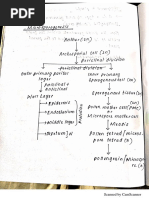 Microsporogenesis
Anther (2n)
Archesporial cell (2n)
Periclinal division
Periclinal division
Outer primary parietal layer
Inner primary Sporogenous cell
Periclinal + anticlinal
Sporogenous tissue (2n)
Wall Layer
Epidermis
Endothecium
Middle layer
Tapetum
Pollen mother cell (2n)
Meiosis
Pollen tetrad
Pollen tetrad
Pollengrain
Scanned by CamScanner